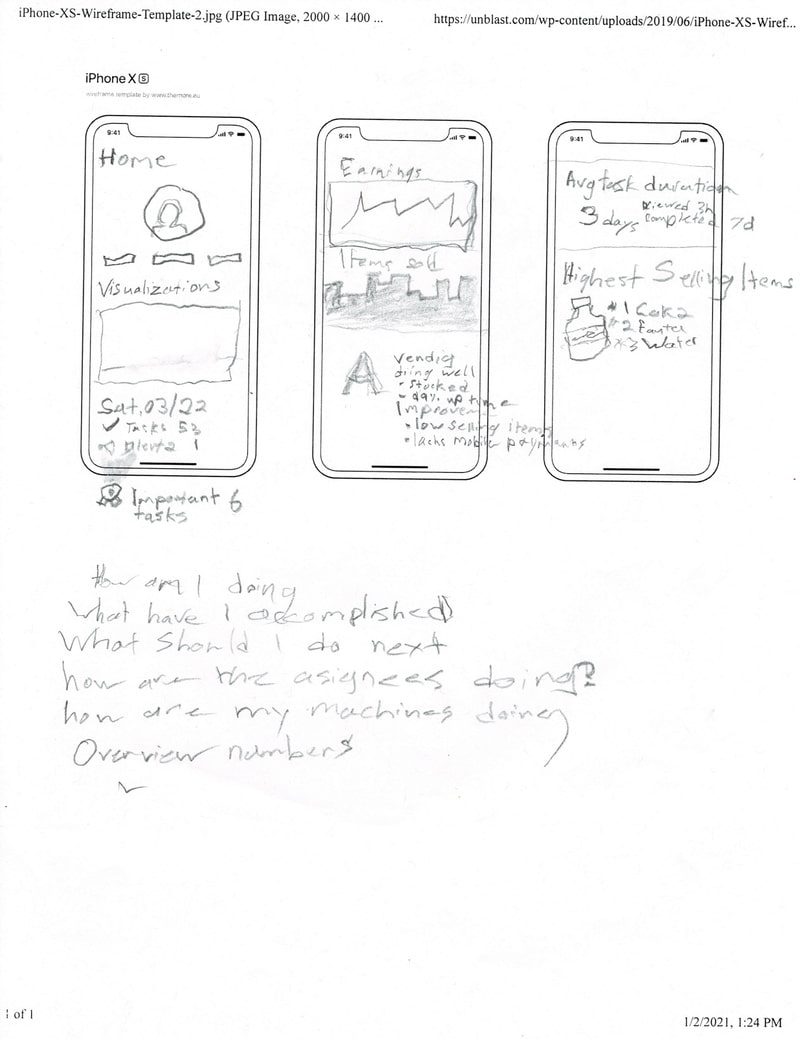 iPhone-XS-Wireframe-Template-2.jpg (JPEG Image, 2000 × 1400 ...
https://unblast.com/wp-content/uploads/2019/06/iPhone-XS-Wiref...
iPhone X S
wireframe template by www.themore.eu
9:41
Home
Visualizations
Sat, 03/22
Tasks 53
Alerts 1
Important 6
tasks
9:41
Earnings
Items sold
A
Vendig
diing well
• Stocked
- 99% up time
Improvem
• low selling items
• lachs mobile paymants
9:41
Avg task duration
3 days
viewed 3h
completed 7d
Highest Selling Items
#1 Cok2
#2 Fanter
#3 Water
How am I doing
What have I accomplished
What Should I do next
how are the asignees doing?
how are my machines doing
Overview numbers
1 of 1
1/2/2021, 1:24 PM